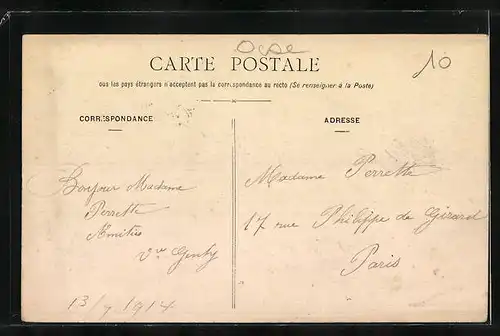 Oise
10
CARTE POSTALE
ous les pays étrangers n'acceptent pas la correspondance au recto (Se renseigner à la Poste)
CORRESPONDANCE
ADRESSE
Bonjour Madame
Perrette
Amitiés
Vve
Madame Perrette
17 rue Philippe de Girard
Paris
13/9 1914